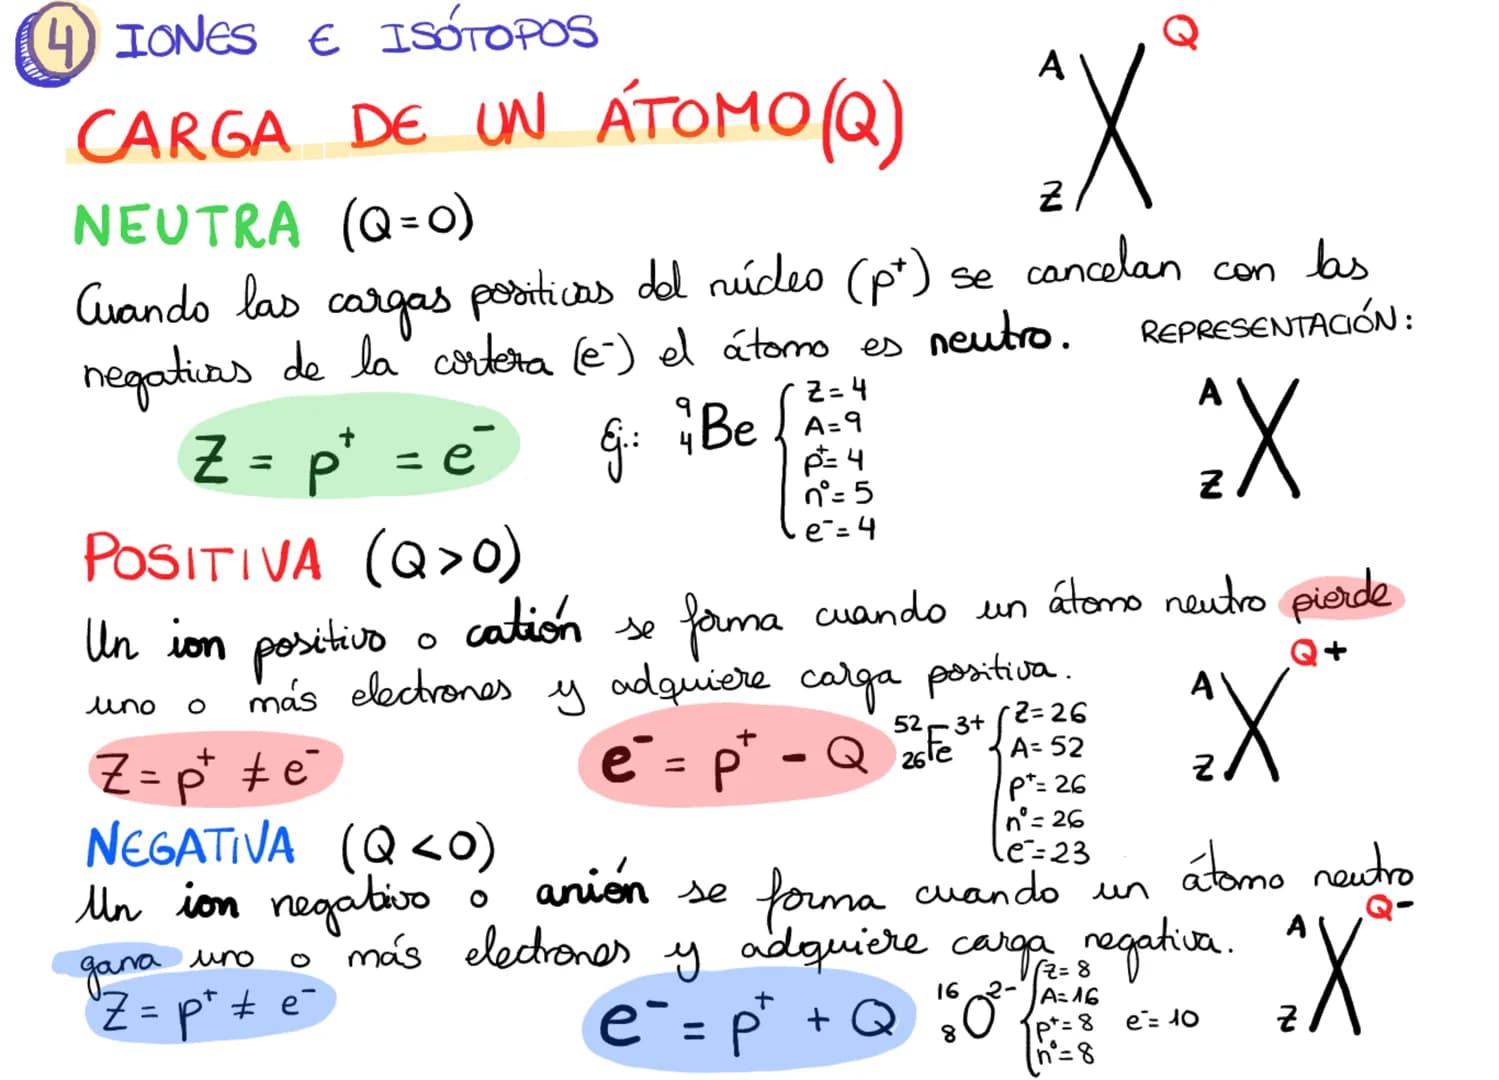 4 IONES E ISÓTOPOS
A X Q
Z
CARGA DE UN ÁTOMO (Q)
NEUTRA (Q=0)
Cuando las cargas positivas del núcleo (p⁺) se cancelan con las
negativas de la corteza (e⁻) el átomo es neutro.
REPRESENTACIÓN:
Z = p⁺ = e⁻
Ej.: ⁹₄Be
Z=4
A=9
p⁺=4
n⁰=5
e⁻=4
A X
Z
POSITIVA (Q>0)
Un ion positivo o catión se forma cuando un átomo neutro pierde
uno o más electrones y adquiere carga positiva.
A X Q+
Z
Z = p⁺ ≠ e⁻
e⁻ = p⁺ - Q
⁵²₂₆Fe³⁺
Z=26
A=52
p⁺=26
n⁰=26
e⁻=23
NEGATIVA (Q<0)
Un ion negativo o anión se forma cuando un átomo neutro
gana uno o más electrones y adquiere carga negativa.
A X Q-
Z
Z = p⁺ ≠ e⁻
e⁻ = p⁺ + Q
¹⁶₈O²⁻
Z=8
A=16
p⁺=8 e⁻=10
n⁰=8